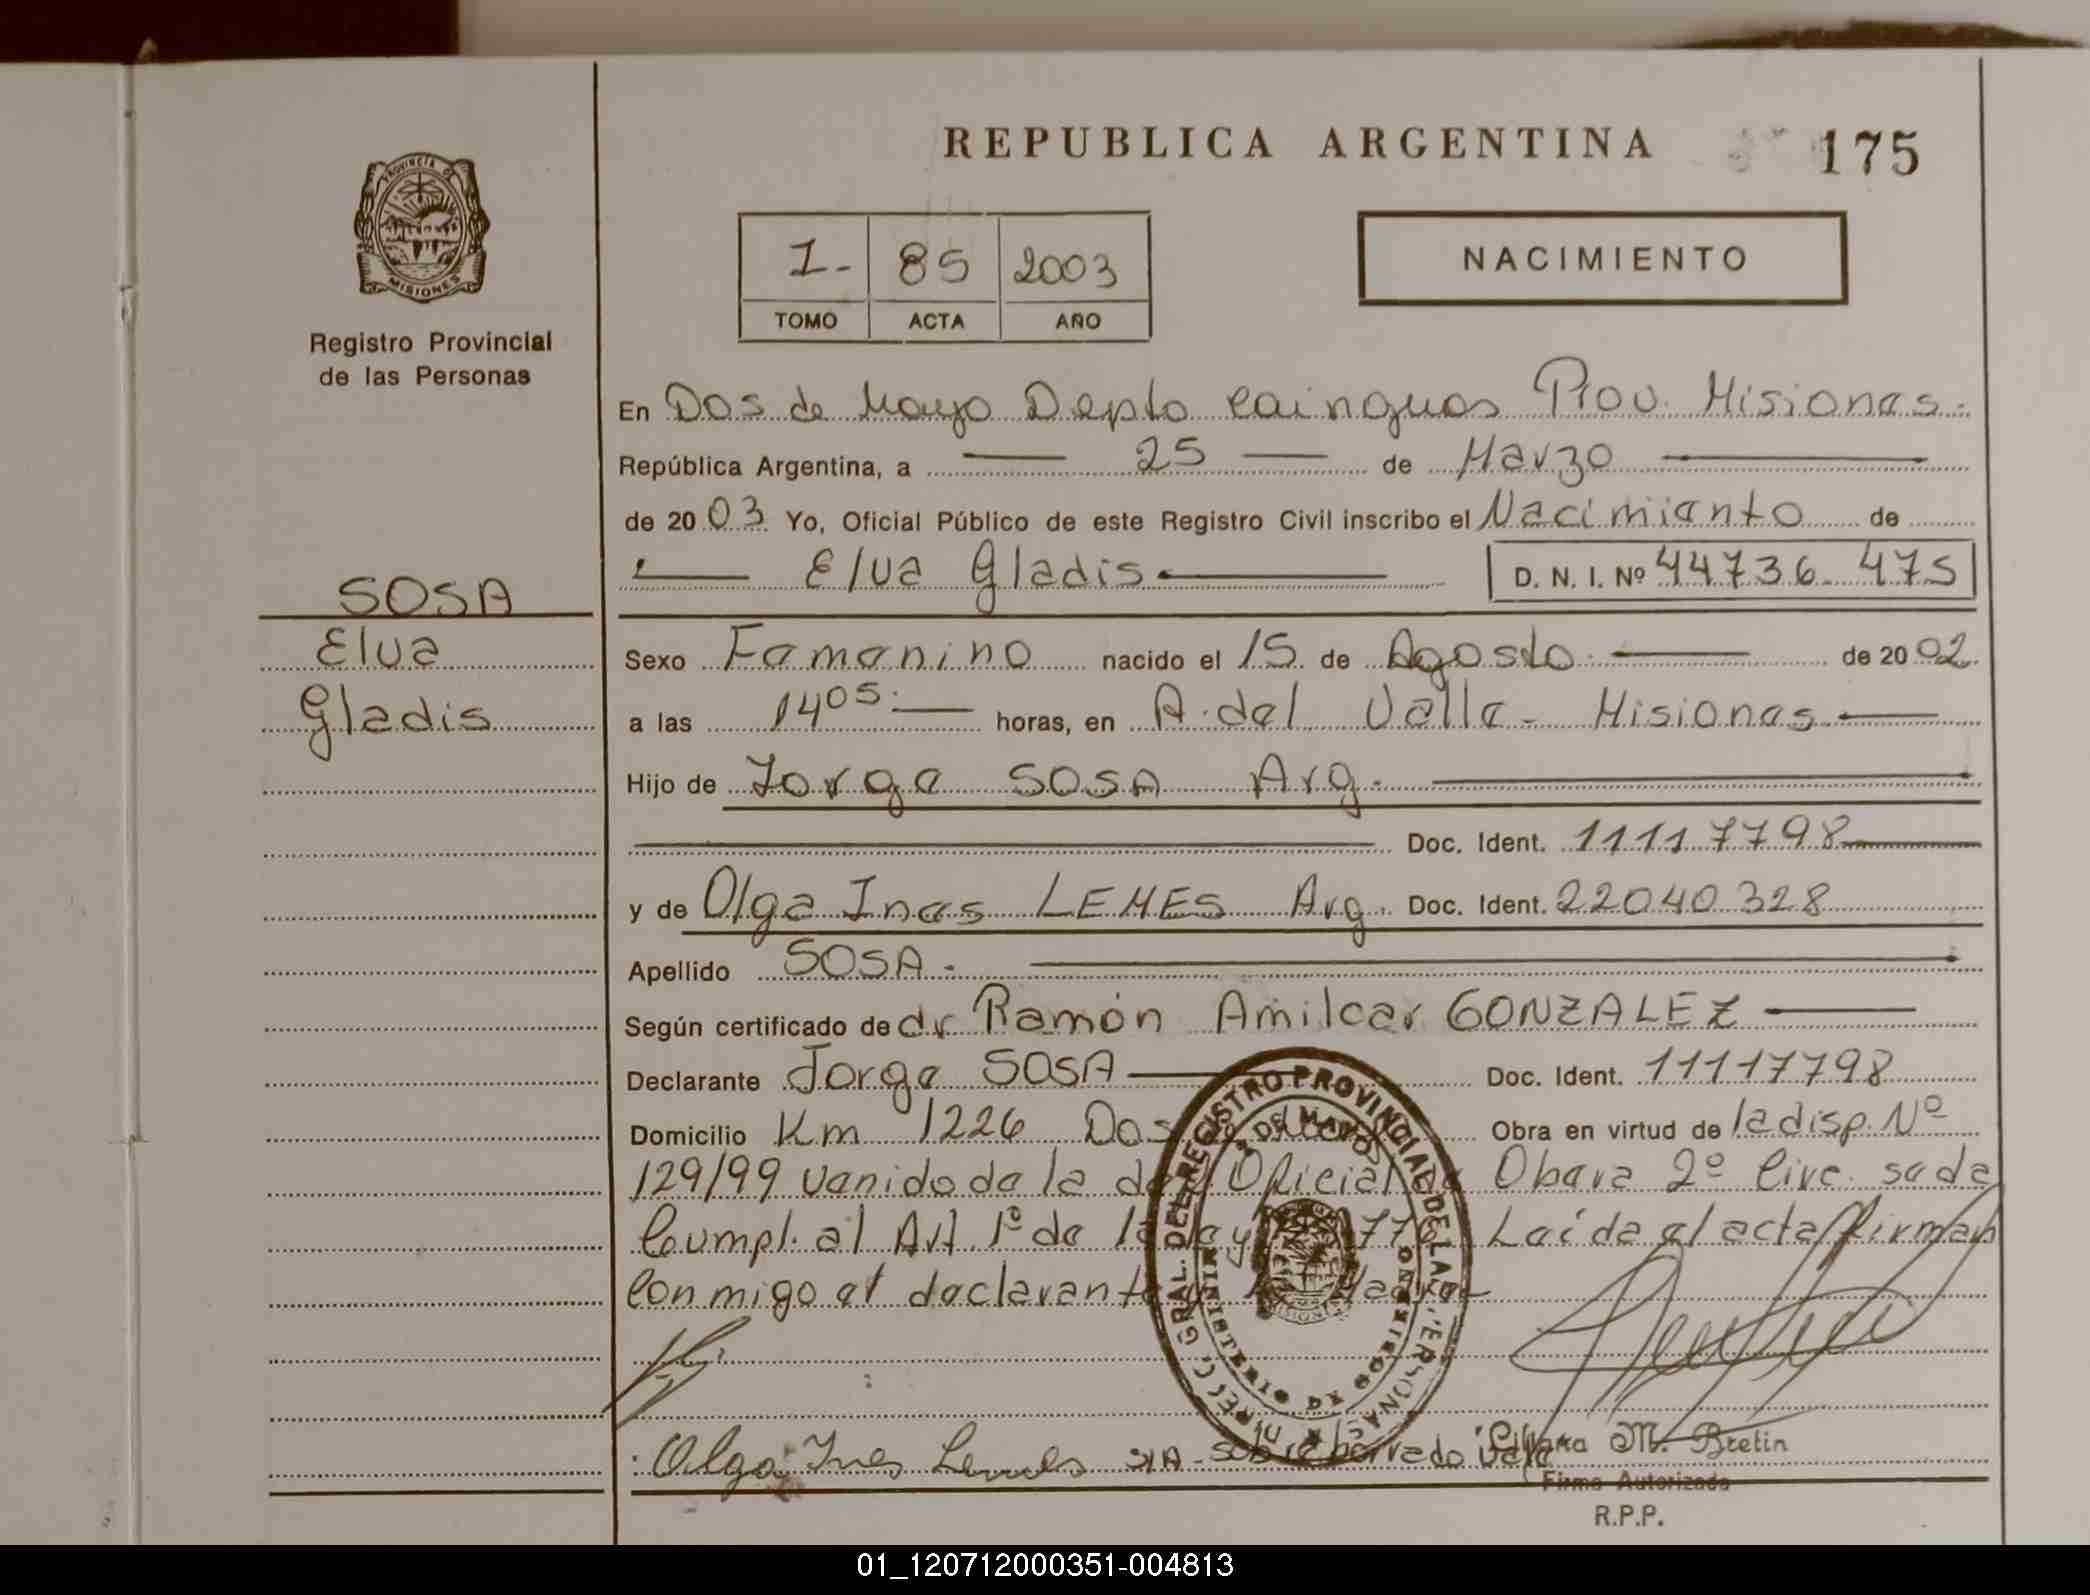 REPUBLICA ARGENTINA
175
PROVINCIA DE MISIONES
Registro Provincial
de las Personas
1- 85 2003
TOMO ACTA AÑO
NACIMIENTO
En Dos de Mayo Depto Cainguas Prov. Misiones.
República Argentina, a 25 de Marzo
de 2003 Yo, Oficial Público de este Registro Civil inscribo el Nacimiento de
Elva Gladis D. N. I. Nº 44736 475
SOSA
Elva
Gladis
Sexo Femenino nacido el 15 de Agosto de 2002
a las 1405 horas, en A. del Valle - Misiones
Hijo de Jorge SOSA Arg.
Doc. Ident. 11117798
y de Olga Ines LEMES Arg. Doc. Ident. 22040328
Apellido SOSA.
Según certificado de dr Ramón Amilcar GONZALEZ
Declarante Jorge SOSA Doc. Ident. 11117798
Domicilio Km 1226 Dos de Mayo Obra en virtud de la disp. Nº
129/99 venido de la Oficial de Obera 2º Circ. se da
Cumpl. al Art. 1º de la Ley Leída el acta firman
conmigo el declarante y la Madre
Olga Ines Lemes S/A - sobre borrado vale
Liliana M. Bretin
Firma Autorizada
R.P.P.
DIRECC. GRAL. DEL REGISTRO PROVINCIAL DE LAS PERSONAS
2 DE MAYO
MINISTERIO DE GOBIERNO
01_120712000351-004813